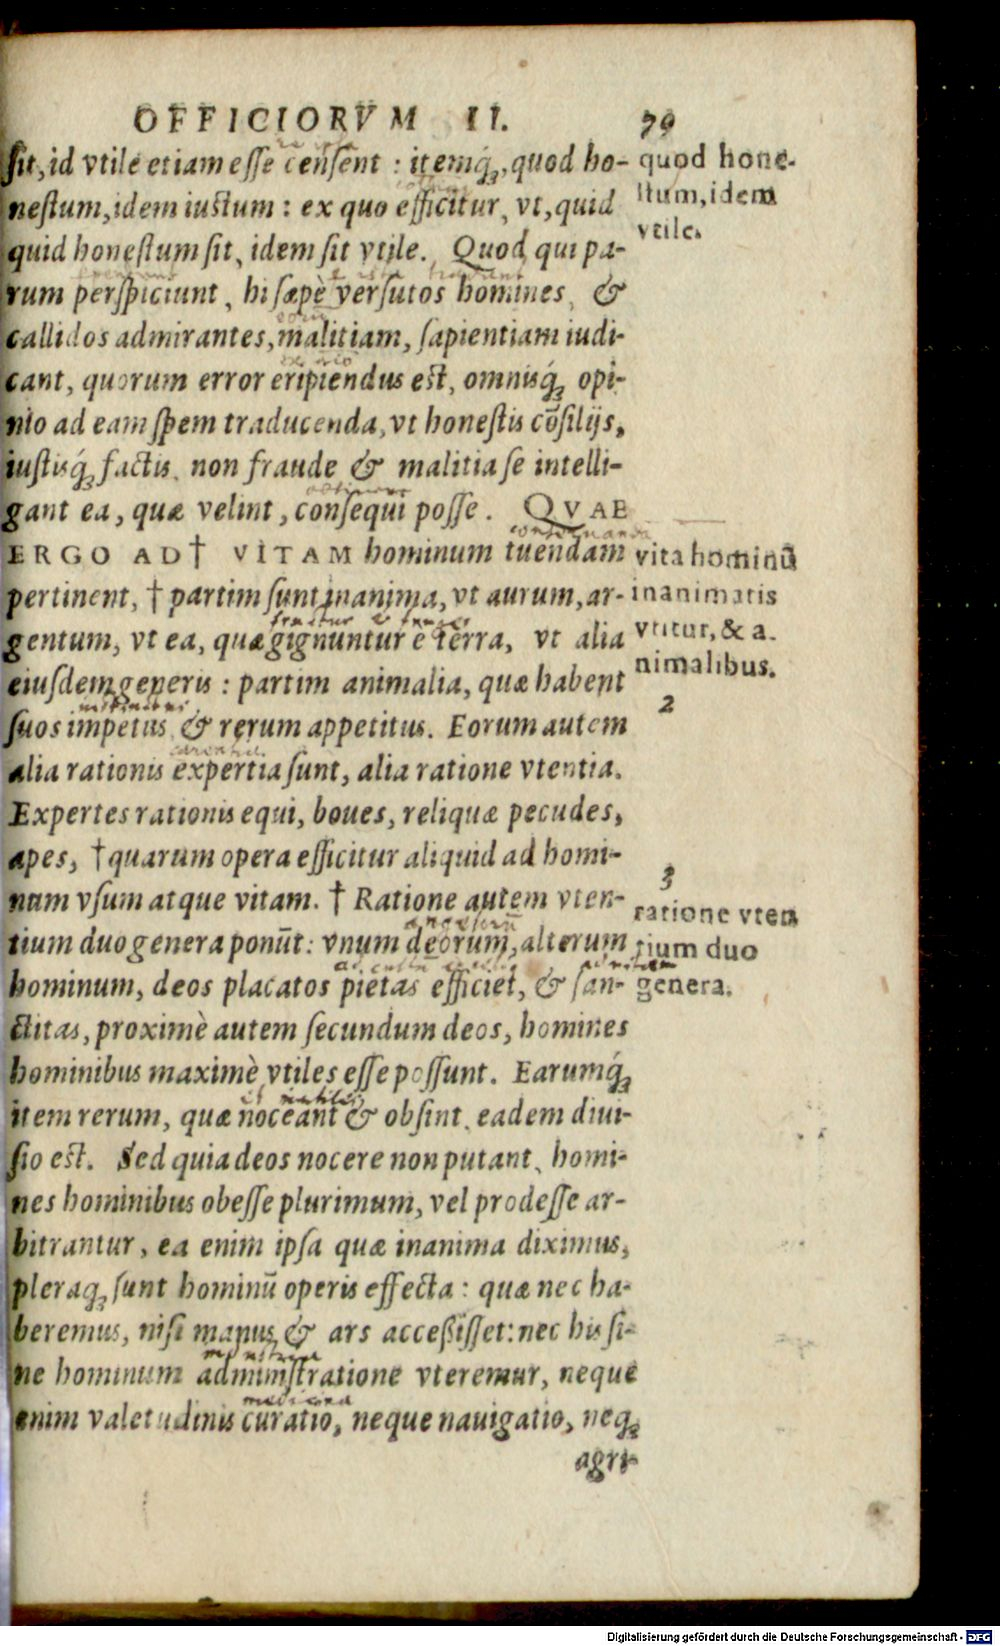 OFFICIORVM II. 79
sit, id vtile etiam esse censent : itemq́;, quod ho-
nestum, idem iustum : ex quo efficitur, vt, quid
quid honestum sit, idem sit vtile. Quod qui pa-
rum perspiciunt, hi sæpè versutos homines, &
callidos admirantes, malitiam, sapientiam iudi-
cant, quorum error eripiendus est, omnisq́; opi-
nio ad eam spem traducenda, vt honestis cõsilijs,
iustisq́; factis, non fraude & malitia se intelli-
gant ea, quæ velint, consequi posse. QVAE
ERGO AD† VITAM hominum tuendam
pertinent, † partim sunt inanima, vt aurum, ar-
gentum, vt ea, quæ gignuntur è terra, vt alia
eiusdem generis : partim animalia, quæ habent
suos impetus, & rerum appetitus. Eorum autem
alia rationis expertia sunt, alia ratione vtentia.
Expertes rationis equi, boues, reliquæ pecudes,
apes, †quarum opera efficitur aliquid ad homi-
num vsum atque vitam. † Ratione autem vten-
tium duo genera ponũt: vnum deorum, alterum
hominum, deos placatos pietas efficiet, & san-
ctitas, proximè autem secundum deos, homines
hominibus maximè vtiles esse possunt. Earumq́;
item rerum, quæ noceant & obsint, eadem diui-
sio est. Sed quia deos nocere non putant, homi-
nes hominibus obesse plurimum, vel prodesse ar-
bitrantur, ea enim ipsa quæ inanima diximus,
pleraq; sunt hominũ operis effecta : quæ nec ha-
beremus, nisi manus & ars accessisset: nec his si-
ne hominum administratione vteremur, neque
enim valetudinis curatio, neque nauigatio, neq;
agri-
quod hone-
stum, idem
vtile.
vita hominũ
inanimatis
vtitur, & a-
nimalibus.
2
3
ratione vten
tium duo
genera.
Digitalisierung gefördert durch die Deutsche Forschungsgemeinschaft - DFG